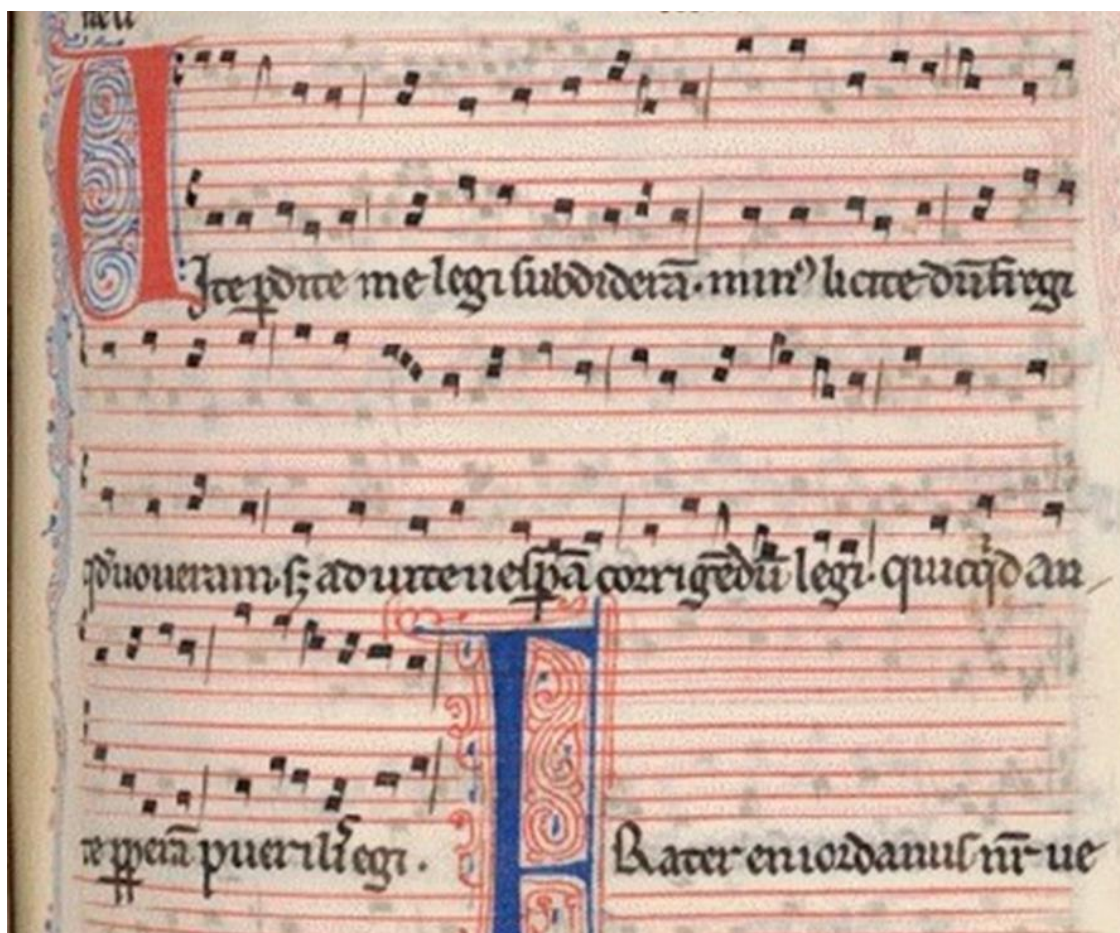 VIte ꝑdite me legi subdiderā. minꝰ licite dū fregi
qd̓ uoueram. sꝫ ad uite uesꝑā corrigēdū legi. quicq̇d an
te ꝑꝑerā puerilis egi. FRater en iordanus nr̄ ue